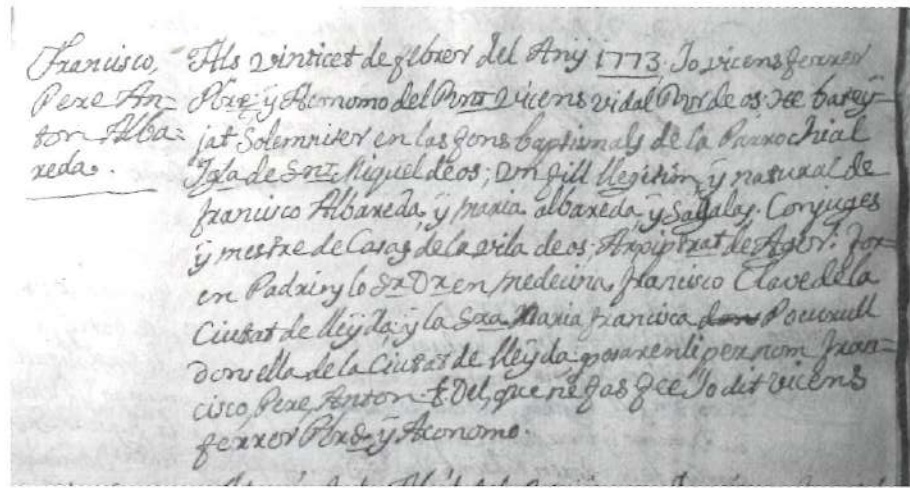 Francisco,
Pere An=
ton Alba=
reda.
Als vinticet de febrer del Any 1773. Jo vicens ferrer
Pbre. ÿ Aconomo del Rnt. Vicens vidal Ror. de os: He batey=
jat Solemniter en las fons baptismals de la Parrochial
Igla de Snt. Miquel de os; Un fill llegitim, ÿ natural de
francisco Albareda, ÿ maria albareda, ÿ Sagalas. Conjuges
ÿ mestre de Casas de la vila de os. Arpiprtat. de Ager. for=
en Padrins lo Sr. Dr. en medecina, francisco Clave de la
Ciutat de lleÿda, ÿ la Sra. Maria francisca Poucurull
donsella de la Ciutat de lleÿda, posarenli per nom fran=
cisco, Pere, Anton. Del, que ne fas fee Jo dit vicens
ferrer Pbre. ÿ Aconomo.